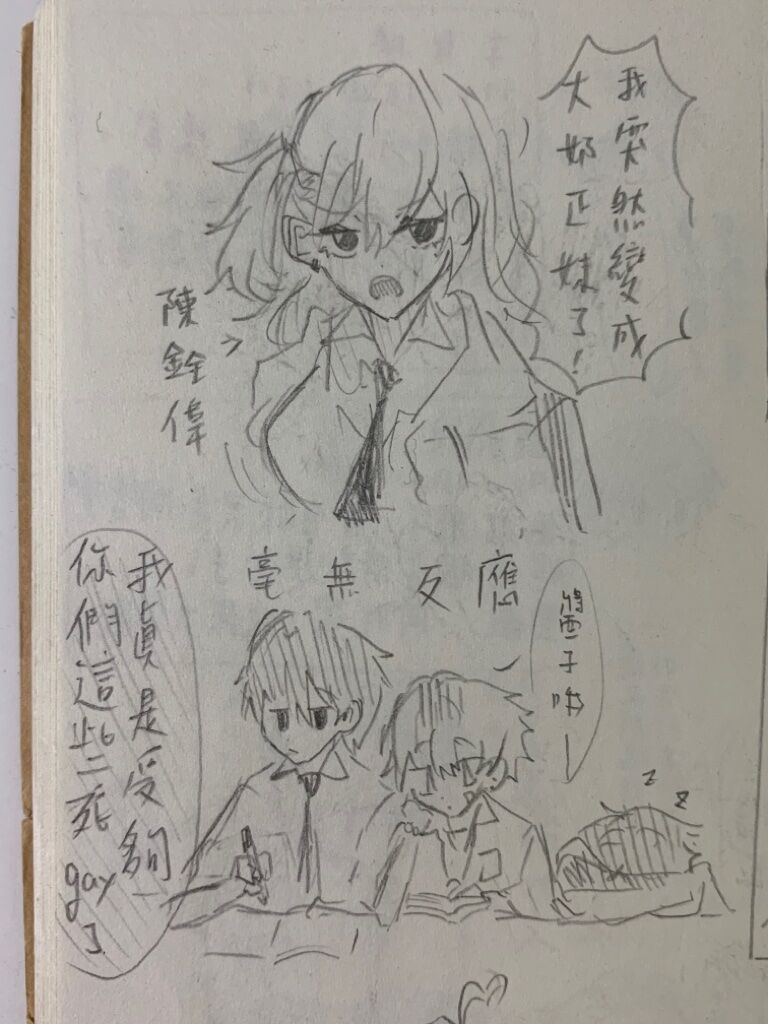 我突然變成
大奶正妹了！
陳銓偉
毫無反應
醬子哦—
我真是受夠
你們這些死gay了
z
z